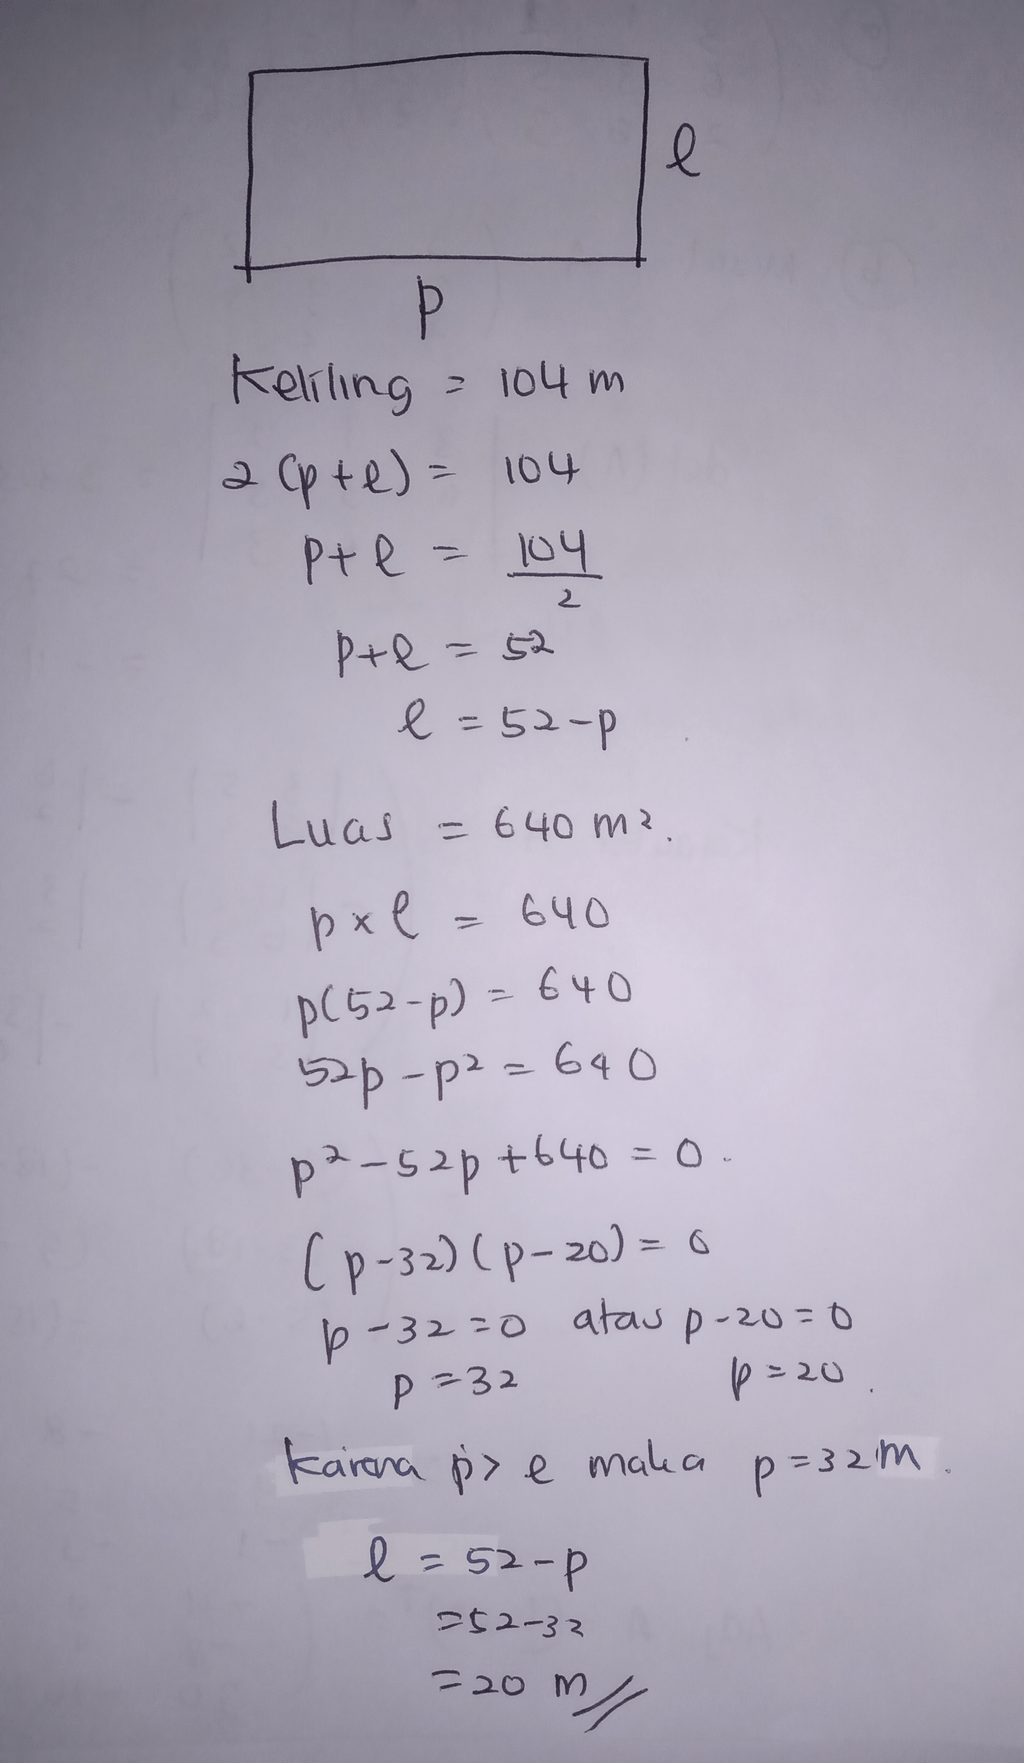 l
p
Keliling = 104 m
2 (p+l) = 104
p+l = 104/2
p+l = 52
l = 52-p
Luas = 640 m².
p×l = 640
p(52-p) = 640
52p - p² = 640
p² - 52p + 640 = 0.
(p-32)(p-20) = 0
p-32=0 atau p-20=0
p=32 p=20.
Karena p> l maka p=32m.
l = 52-p
=52-32
=20 m //